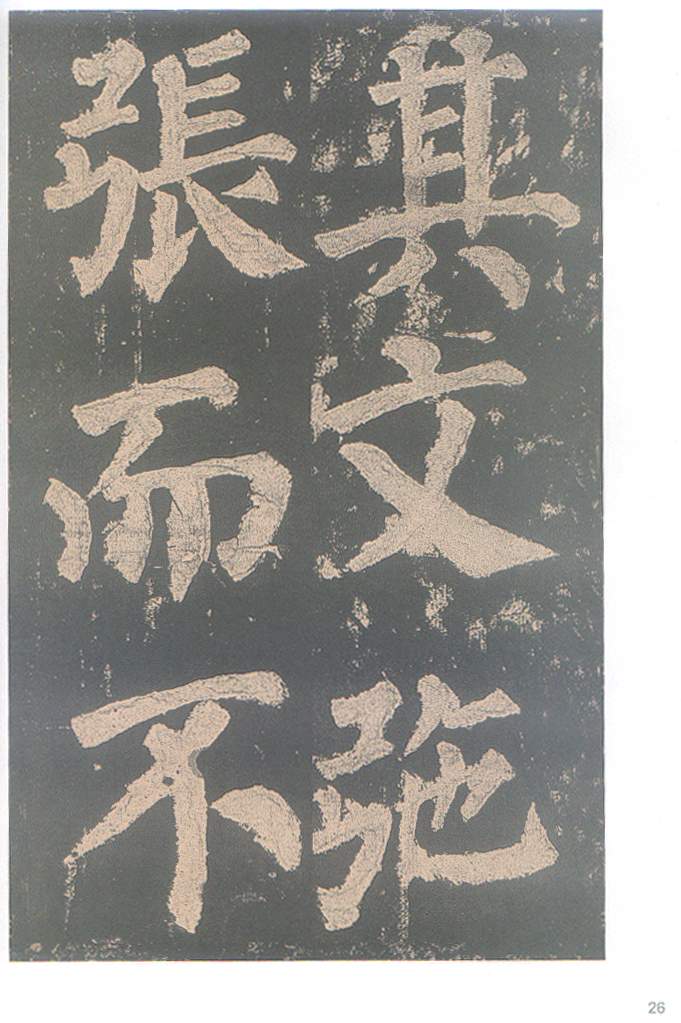 其文弛
張而不
26